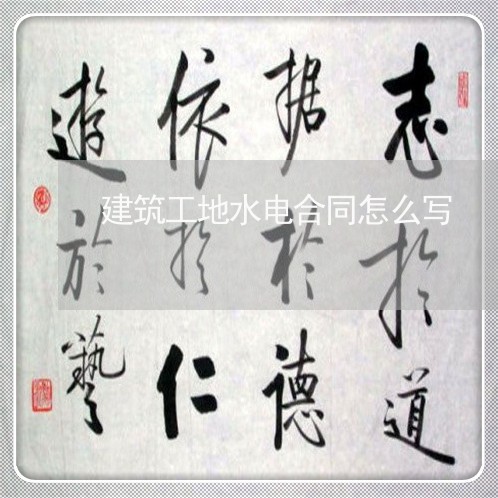 志於道
据於德
依於仁
遊於藝
建筑工地水电合同怎么写